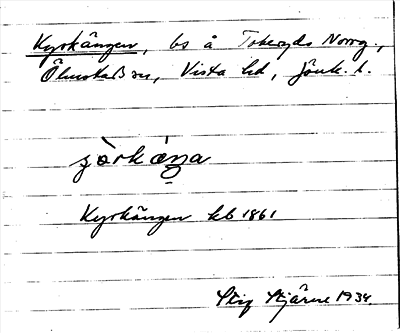 Kyrkängen, bs å Tokeryds Norrg.,
Ölmstads sn, Vista hd, Jönk. l.
Kyrkängen kb 1861
Stig Stjärne 1934.